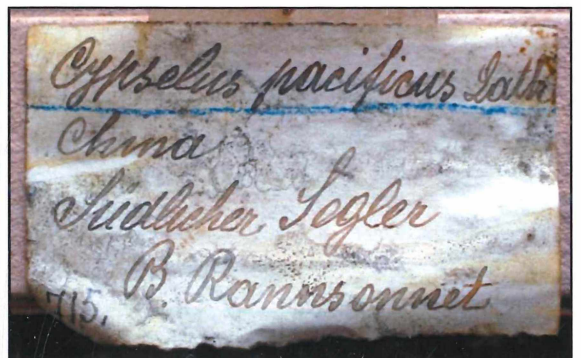 Cypselus pacificus Lath
China
Südlicher Segler
B. Ransonnet
715.